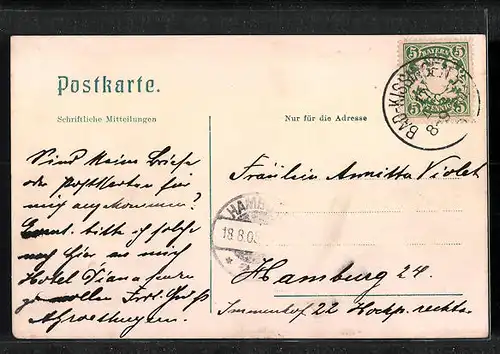 Postkarte.
Schriftliche Mitteilungen
Nur für die Adresse
BAYERN
5 5
PFENNIG
BAD-KISSINGEN
HAMB
18.8.05
Sind keine Briefe
oder Postkarten für
mich angekommen?
bitte ich solche
nach hier an mich
Hotel Diana
zu wollen Gruß
Fräulein Annitta Violet
Hamburg 24.
Immenhof 22 Hochp. rechts.